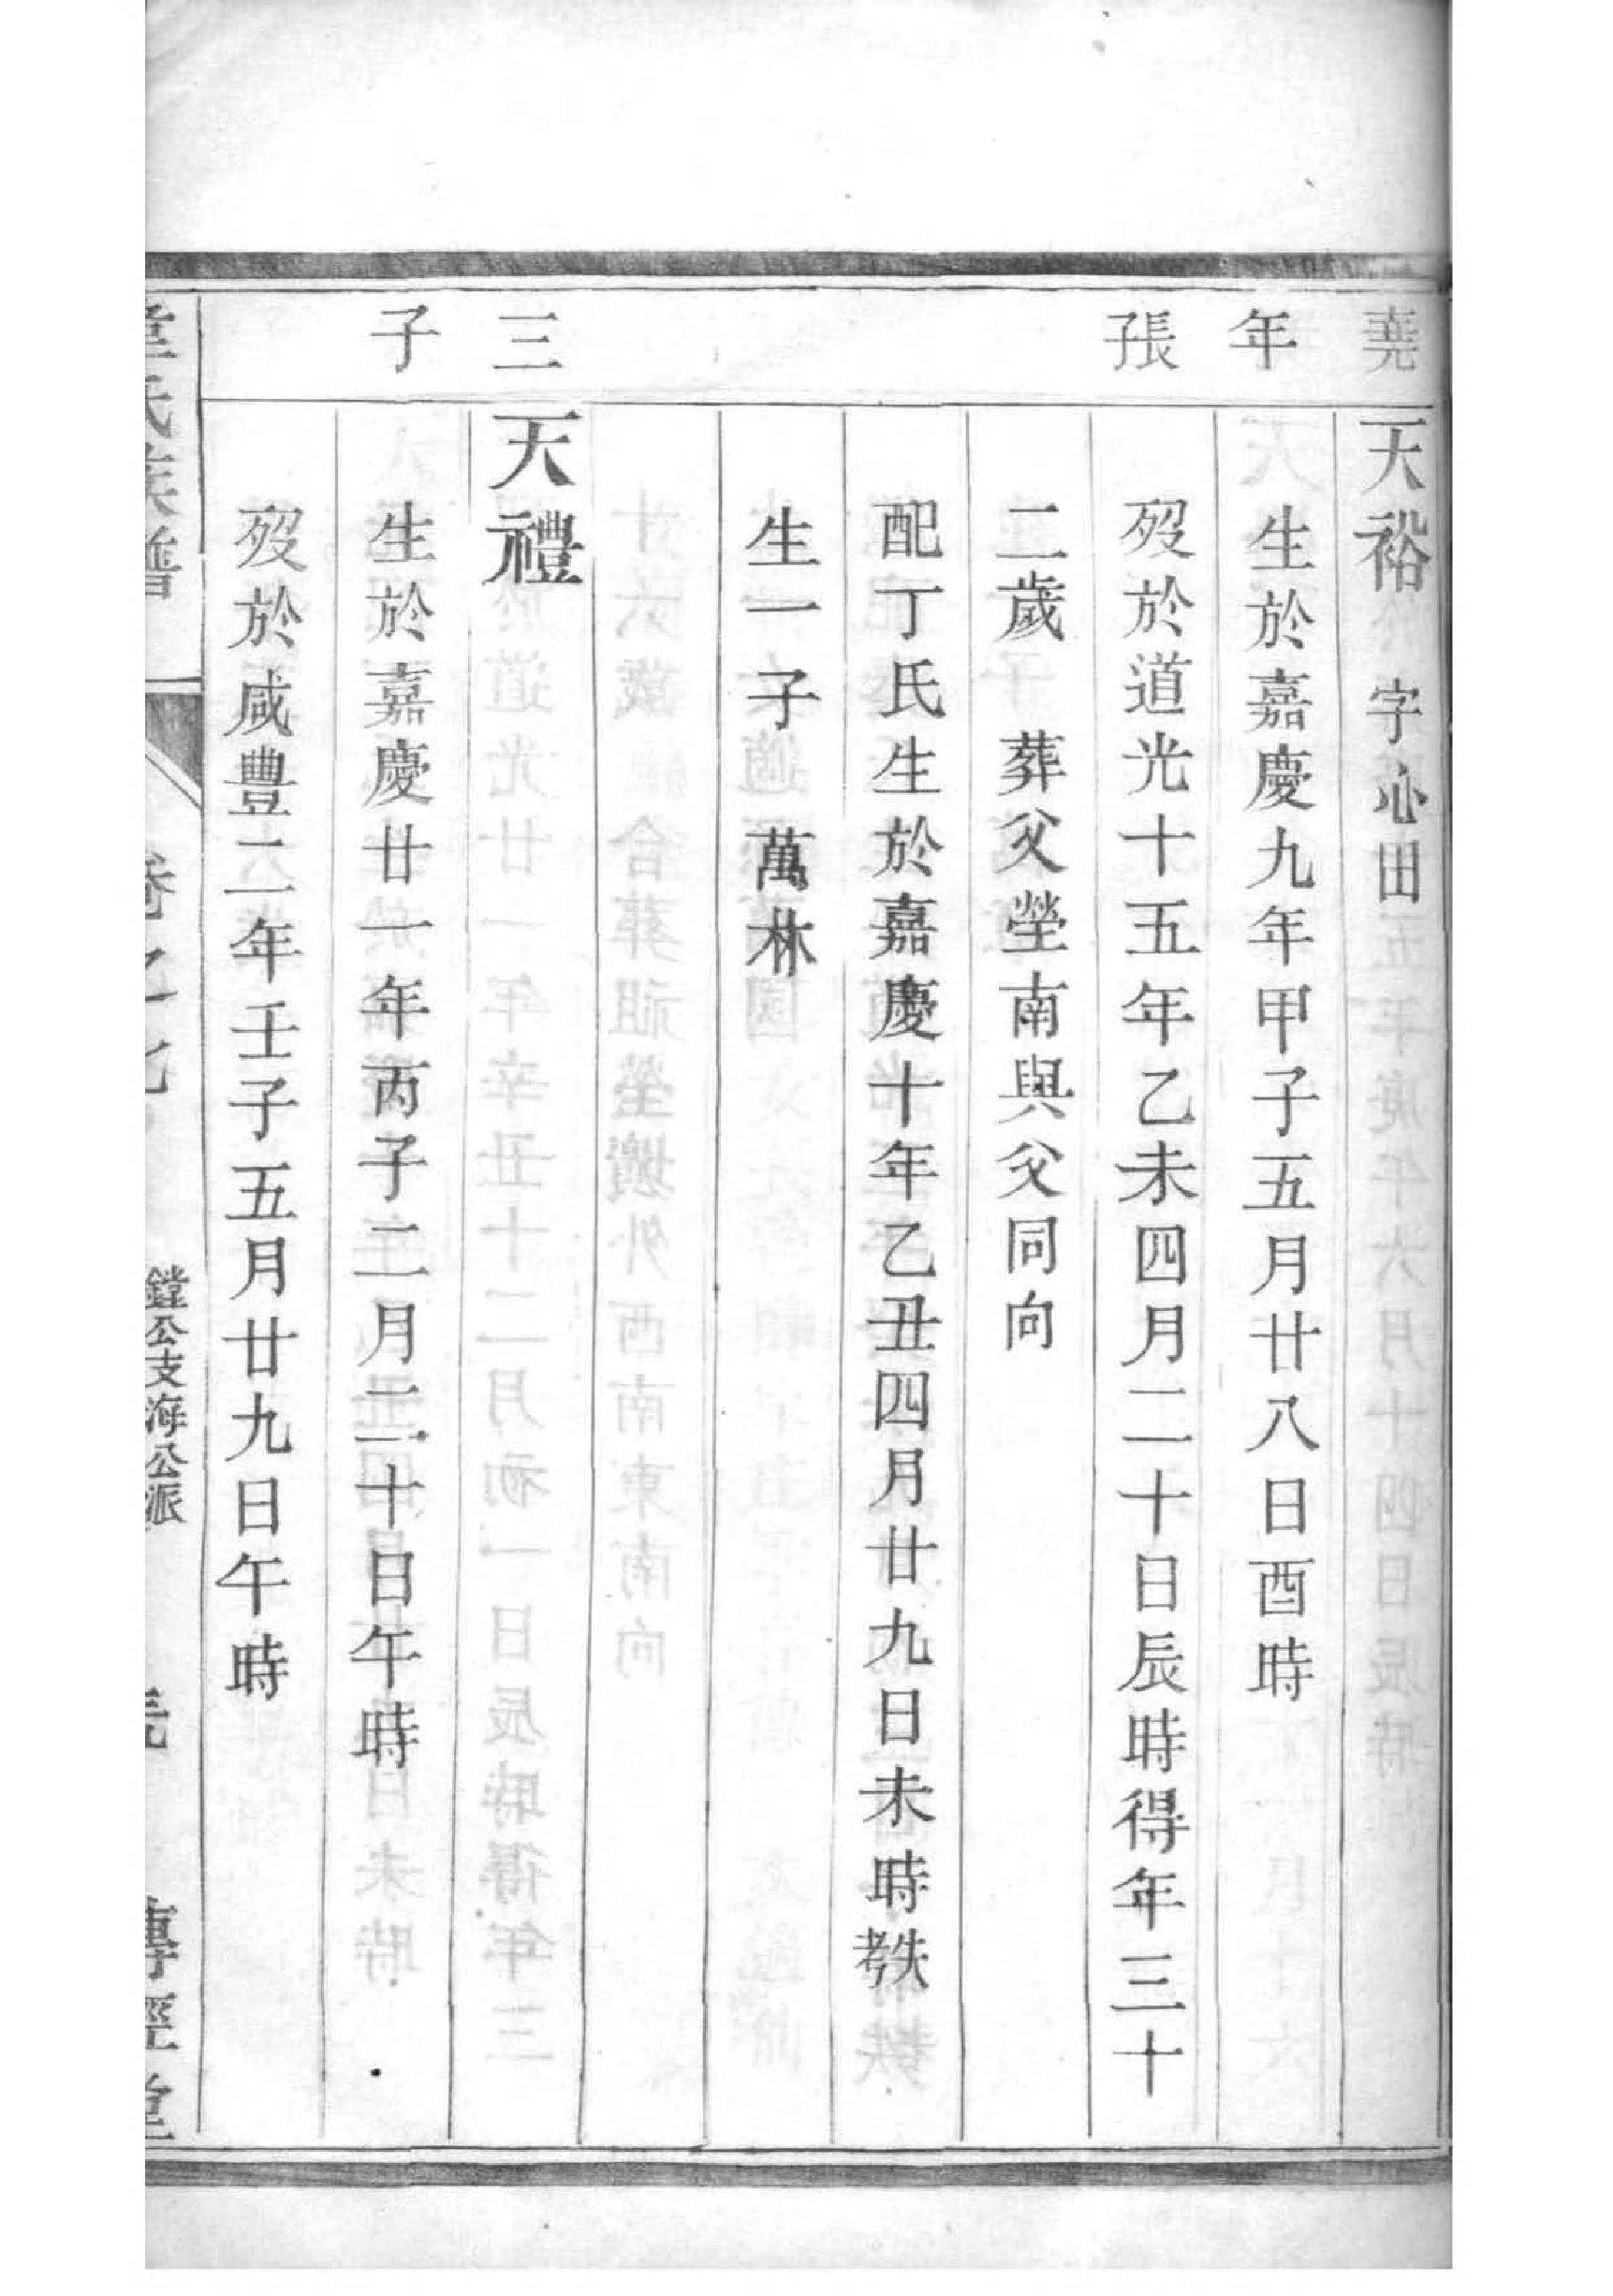 堯年長子
天裕 字心田
生於嘉慶九年甲子五月廿八日酉時
歿於道光十五年乙未四月二十日辰時得年三十
二歲 葬父塋南與父同向
配丁氏生於嘉慶十年乙丑四月廿九日未時失考
生一子 萬林
三子
天禮
生於嘉慶廿一年丙子二月二十日午時
歿於咸豐二年壬子五月廿九日午時
氏族譜 卷之 鏜公支海公派 傳經堂